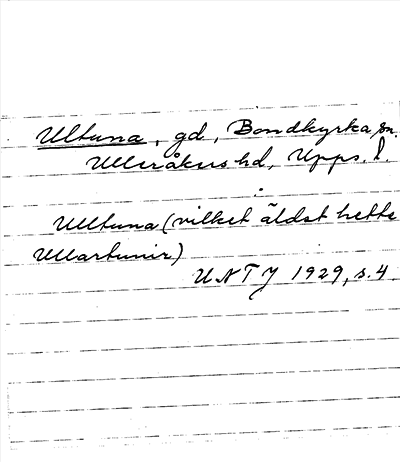 Ultuna, gd, Bondkyrka sn.
Ulleråkers hd, Upps. l.
Ulltuna (vilket äldst hette
Ullartunir)
UNTJ 1929, s. 4.